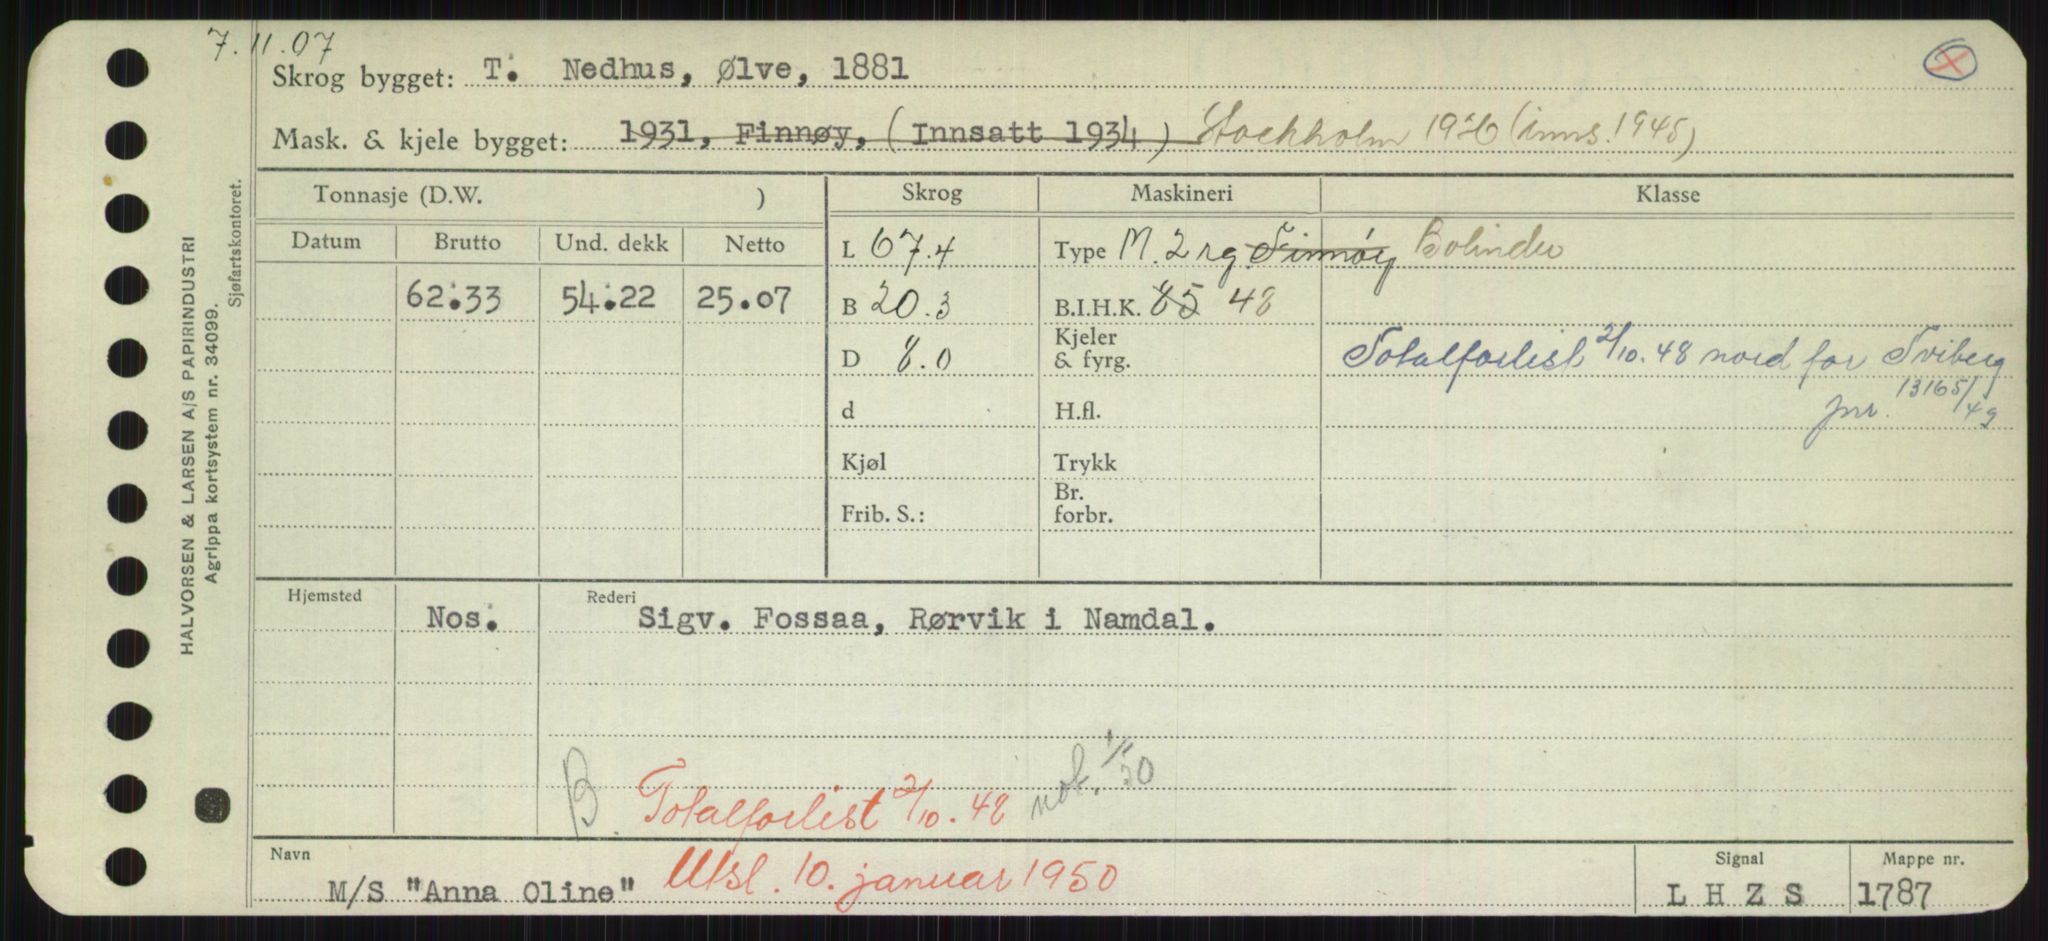 7.11.07
Skrog bygget: T. Nedhus, Ølve, 1881
Mask. & kjele bygget: 1931, Finnøy, (Innsatt 1934) Stockholm 1926 (inns. 1945)
Tonnasje (D.W. ) Skrog Maskineri Klasse
Datum Brutto Und. dekk Netto L 67.4 Type M. 2 rg. Finnøy Bolinder
62.33 54.22 25.07 B 20.3 B.I.H.K. 85 48
D 8.0 Kjeler & fyrg. Totalforlist 2/10.48 nord for Sviberg
d H.fl. jnr. 13165/49
Kjøl Trykk
Frib. S.: Br. forbr.
Hjemsted Rederi
Nos. Sigv. Fossaa, Rørvik i Namdal.
B. Totalforlist 2/10.48 not. 1/50
Navn Signal Mappe nr.
M/S "Anna Oline" Utsl. 10. januar 1950 L H Z S 1787
HALVORSEN & LARSEN A/S PAPIRINDUSTRI
Agrippa kortsystem nr. 34099.
Sjøfartskontoret.